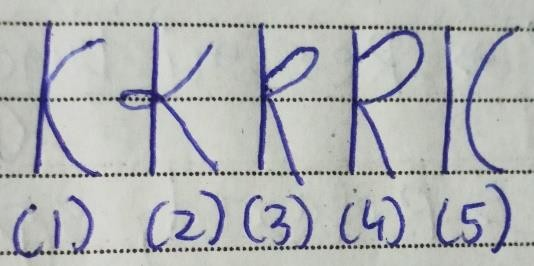 K K k R K
(1) (2) (3) (4) (5)